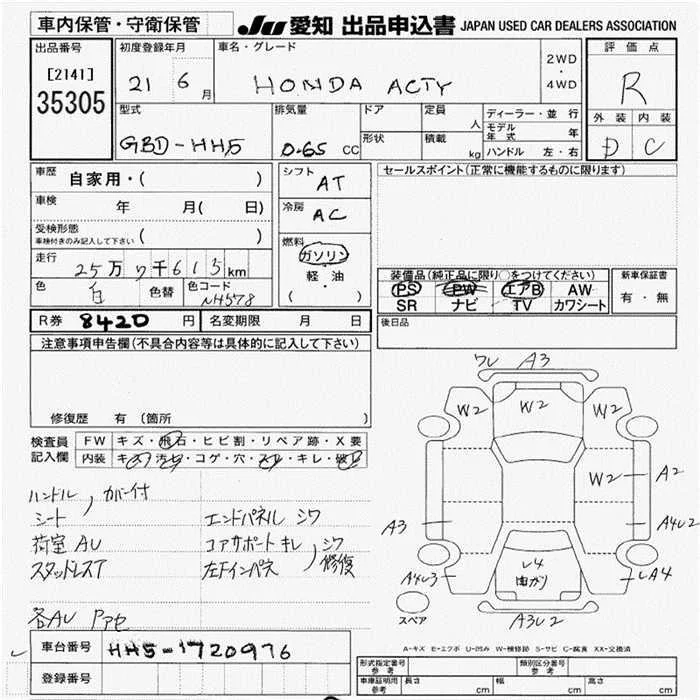 車内保管・守衛保管 JU 愛知 出品申込書 JAPAN USED CAR DEALERS ASSOCIATION
出品番号 初度登録年月 車名・グレード 2WD・4WD 評価点
[2141] 35305 21 6月 HONDA ACTY R
型式 排気量 ドア 定員 人 ディーラー・並行 外装 内装
形状 積載 kg モデル年式 年
GBD-HH5 0.65 CC ハンドル 左・右 D C
車歴 自家用・( ) シフト AT セールスポイント(正常に機能するものに限ります)
車検 年 月( 日) 冷房 AC
受検形態 ( )
車検付きのみ記入して下さい
燃料 ガソリン
軽・油
( )
走行 25万7千613km
色 白 色替 色コード NH578
装備品(純正品に限り○をつけてください) 新車保証書
PS PW エアB AW 有・無
SR ナビ TV カワシート
R券 8420円 名変期限 月 日 後日品
注意事項申告欄(不具合内容等は具体的に記入して下さい)
修復歴 有 (箇所 )
検査員 FW キズ・飛石・ヒビ割・リペア跡・X要
記入欄 内装 キズ・汚れ・コゲ・穴・スレ・キレ・破れ
ハンドル , カバー付
シート
荷室AU
スタッドレスT
エンドパネル シワ
コアサポート キレ , シワ
左Fインパネ 修復
各AU
ワレ A3
W2 W2 W2
W2 A2
A3 A4U2
A4U3 レ4 曲がり レA4
スペア A3U2
A-キズ E-エクボ U-凹み W-補修跡 S-サビ C-腐食 XX-交換済
車台番号 HH5-1720976
登録番号
形式指定番号 参考 類別区分番号 参考
車庫証明用 参考 長さ cm 幅 cm 高さ cm